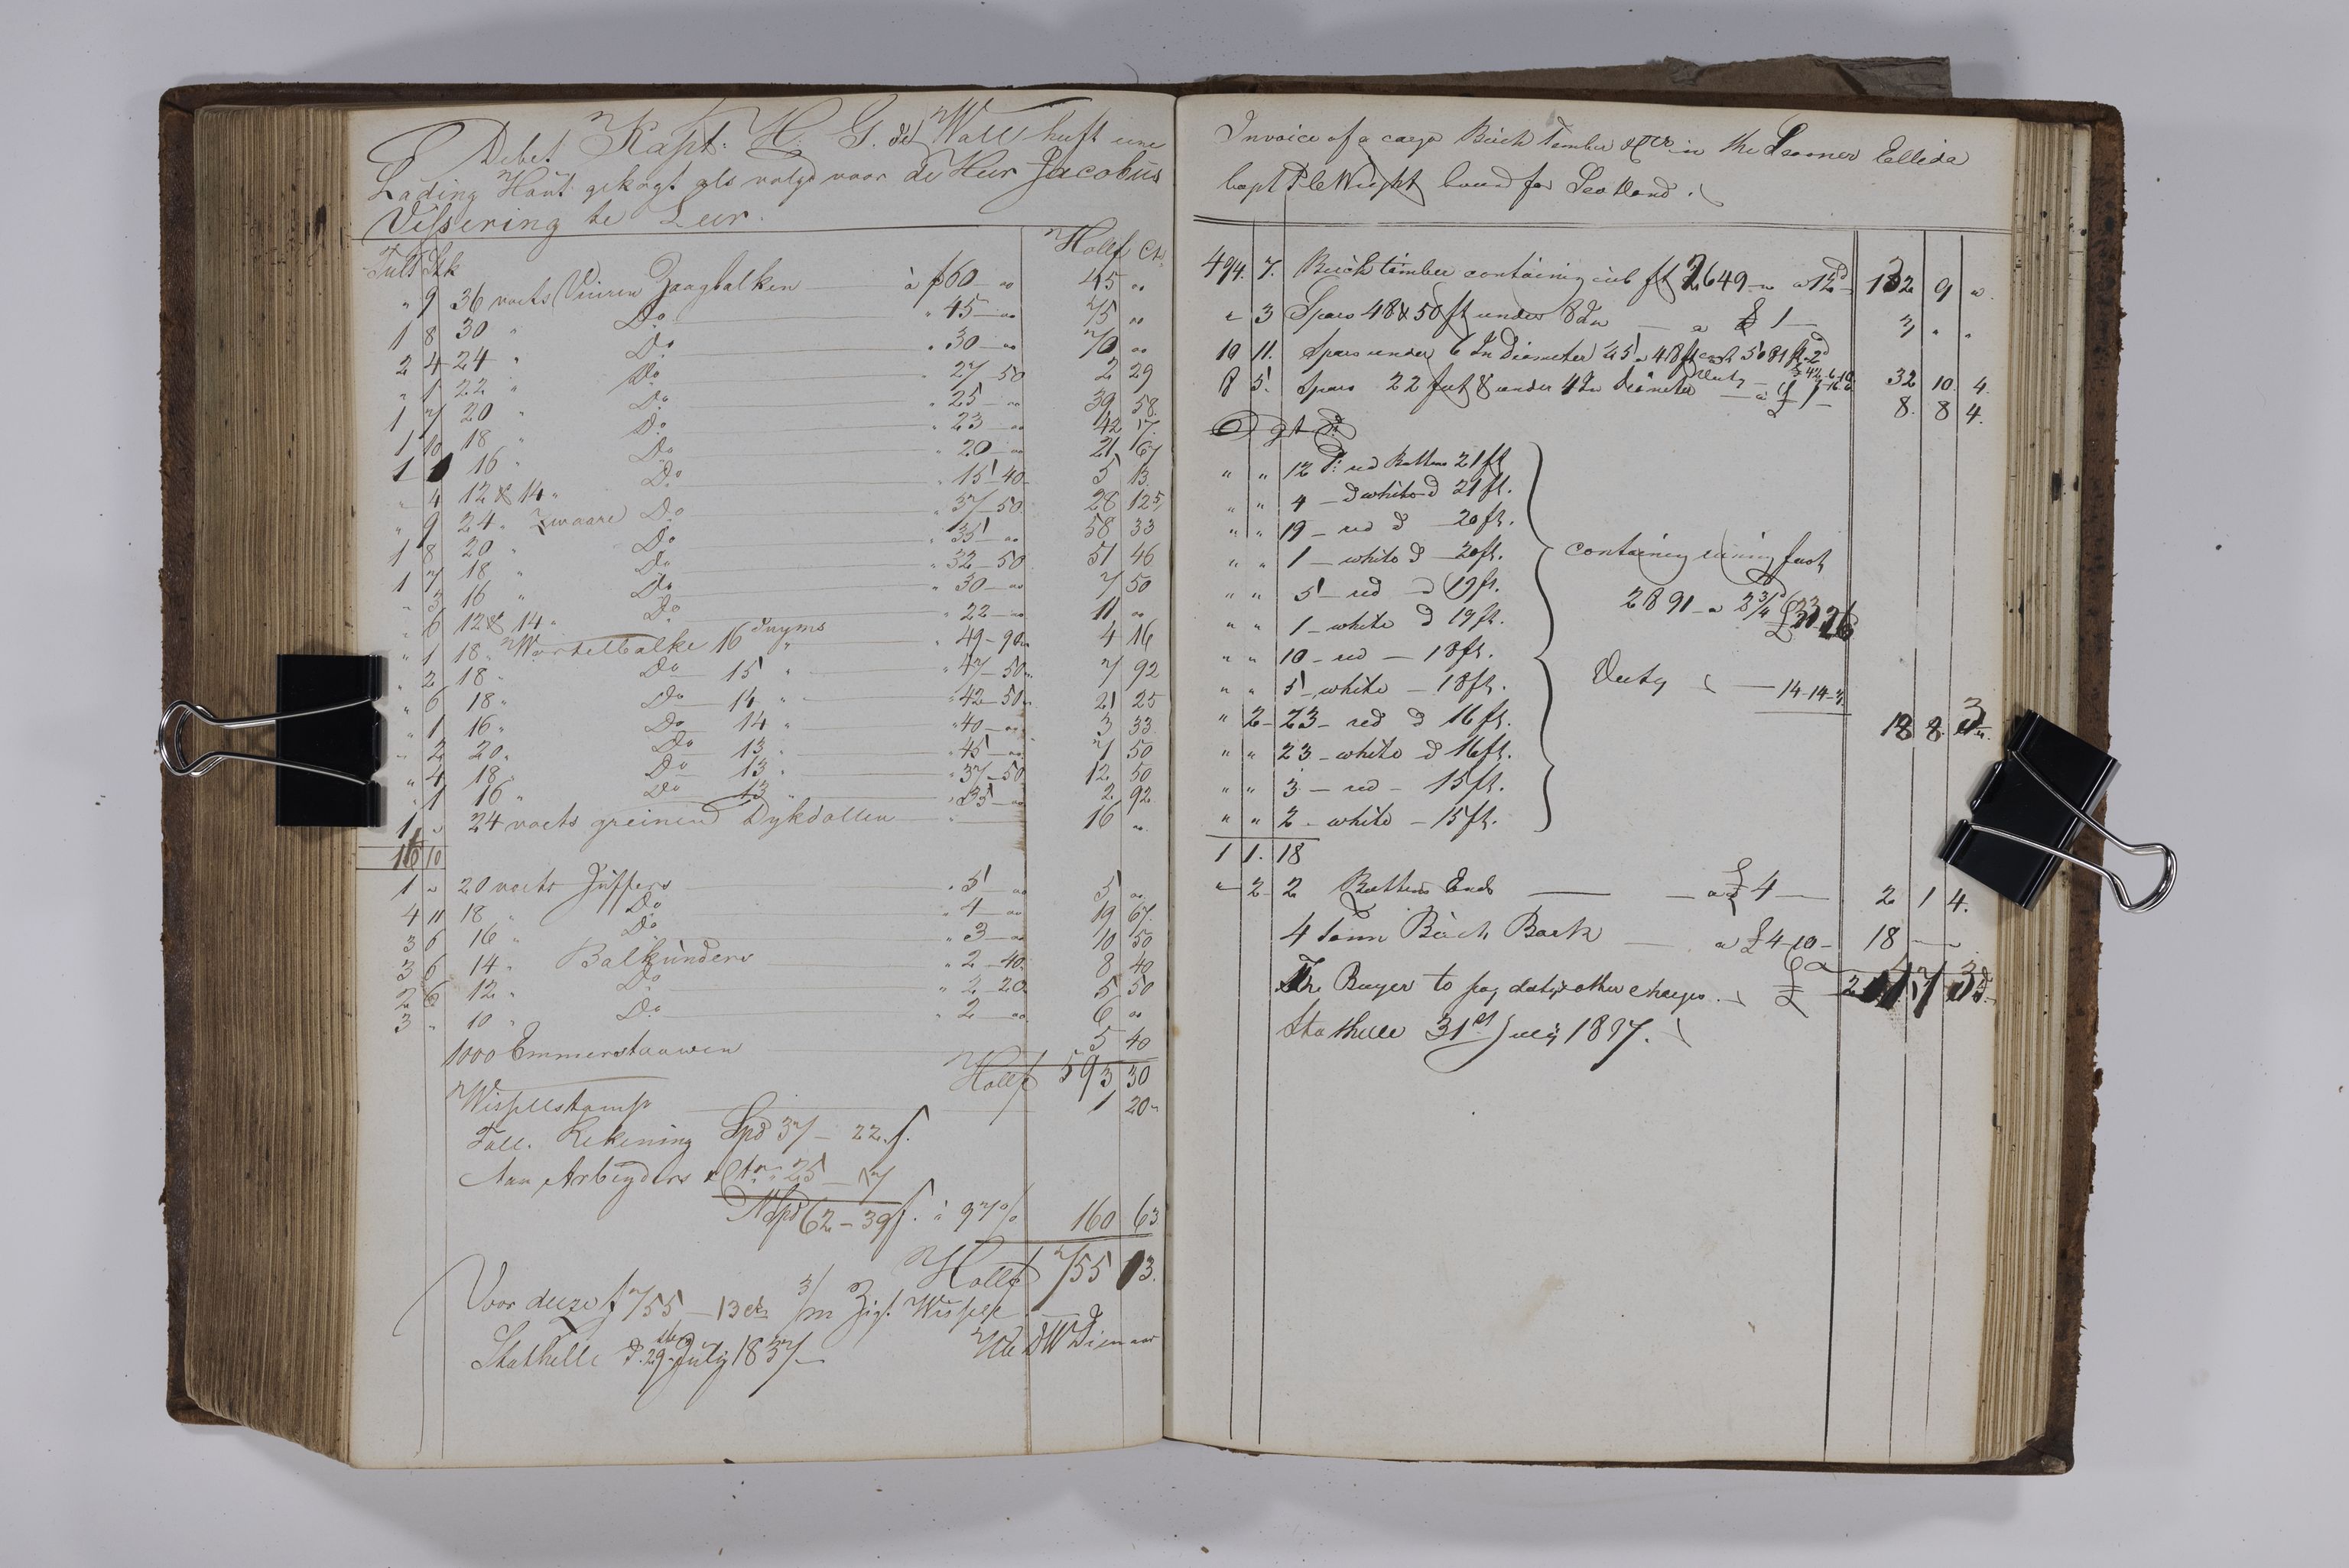 Debet Kapt: H. G. de Wall heeft eene
Lading Hout gekogt als volgd voor de Heer Jacobus
Vissering te Leer.
Tult Stk Hollf Cts
" 9 36 voets Vuiren Zaagbalken à f 60 — " 45 "
1 8 30 " Do " 45 — " 75 "
2 4 24 " Do " 30 — " 70 "
" 1 22 " Do " 27 — 50 2 29
1 7 20 " Do " 25 — " 39 58
1 10 18 " Do " 23 — " 42 17
1 1 16 " Do " 20 — " 21 67
" 4 12 & 14 " Do " 15 — 40 5 13
" 9 24 " Zwaare Do " 37 — 50 28 125
1 8 20 " Do " 35 — " 58 33
1 7 18 " Do " 32 — 50 51 46
" 3 16 " Do " 30 — " 7 50
" 6 12 & 14 " Do " 22 — " 11 "
" 1 18 " Wortelbalke 16 duyms " 49 — 90 4 16
" 2 18 " Do 15 " " 47 — 50 7 92
" 6 18 " Do 14 " " 42 — 50 21 25
" 1 16 " Do 14 " " 40 — " 3 33
" 2 20 " Do 13 " " 45 — " 7 50
" 4 18 " Do 13 " " 37 — 50 12 50
" 1 16 " Do 13 " " 35 — " 2 92
1 " 24 voets greinen Dykdallen " 16 "
16 10
1 " 20 voets Juffers " 5 — " 5 "
4 11 18 " Do " 4 — " 19 67
3 6 16 " Do " 3 — " 10 50
3 6 14 " Balkunders " 2 — 40 8 40
2 6 12 " Do " 2 — 20 5 50
3 " 10 " Do " 2 — " 6 "
1000 Emmerstaauwen 5 40
Hollf 593 30
Wissellstamp 1 20
Toll. Rekening Spd 37 — 22 f.
Aan Arbeyders 25 — 17
Spd 62 — 39 f. à 97% 160 63
Hollf 755 13.
Voor deeze f 755 — 13 cts 3/m Zigt Wissell
Stathelle d. 29 July 1837 — UE DW Dienaar
Invoice of a cargo Birch Timber in the Ellida
Capt Wright bound for Scotland.
494. 7. Birch timber containing cub ft 2649 — a 12d 132 9 "
" 3 Spars 48 & 50 ft under 8 In — a £ 1 — 3 " "
19 11. Spars under 6 In Diameter 45 a 48 ft 5081 ft 2d
32 10 4.
8 5. Spars 22 feet & under 4 In Diameter — a £ 1 — 8. 8 4.
" " 12 P: red Battens 21 ft
" " 4 — d white d 21 ft.
" " 19 — red d — 20 ft.
" " 1 — white d — 20 ft. containing
" " 5 — red d 19 ft.
" " 1 — white d 19 ft. 2891 a 2 3/4
" " 10 — red — 18 ft.
" " 5 — white — 18 ft. Duty — 14-14-
" 2 - 23 — red d 16 ft. 18 8
" " 23 — white d 16 ft.
" " 3 — red — 15 ft.
" " 2 — white — 15 ft.
1 1. 18
" 2 2 Battens Ends — a £ 4 — 2 1 4.
4 Tonn Birch Bark — a £ 4-10 — 18 —
The Buyer to pay duty & other charges. £
Stathelle 31st July 1837.